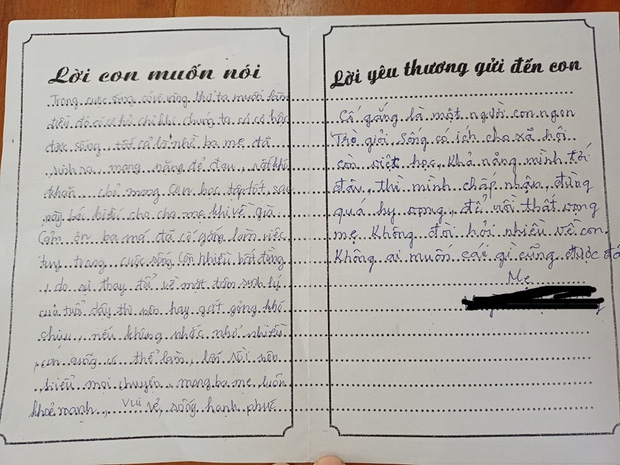 Lời con muốn nói
Trong cuộc sống có vô vàng thứ ta muốn làm
điều đó có chỉ khi chúng ta có cuộc
được sống tất cả là nhờ ba mẹ đã
sinh ra, mang nặng đẻ đau, rất khó
khăn chỉ mong con học tập tốt sau
này báo hiếu cho cha mẹ khi về già
Cảm ơn ba má đã cố gắng làm việc
tuy trong cuộc sống còn nhiều bất đồng
do sự thay đổi về mặt tâm sinh lý
của tuổi dậy thì nên hay gắt gỏng khó
chịu, nếu không nhắc nhở nhiều
con cũng có thể làm, lại
hiểu mọi chuyện, mong ba mẹ luôn
khoẻ mạnh, vui vẻ, sống hạnh phúc
Lời yêu thương gửi đến con
Cố gắng là một người con ngon
Trò giỏi, sống có ích cho xã hội
còn việt học, khả năng mình tới
đâu thì mình chấp nhận, đừng
quá hy vọng, để rồi thất vọng
mẹ không đòi hỏi nhiều về con
Không ai muốn cái gì cũng được đâ
Mẹ